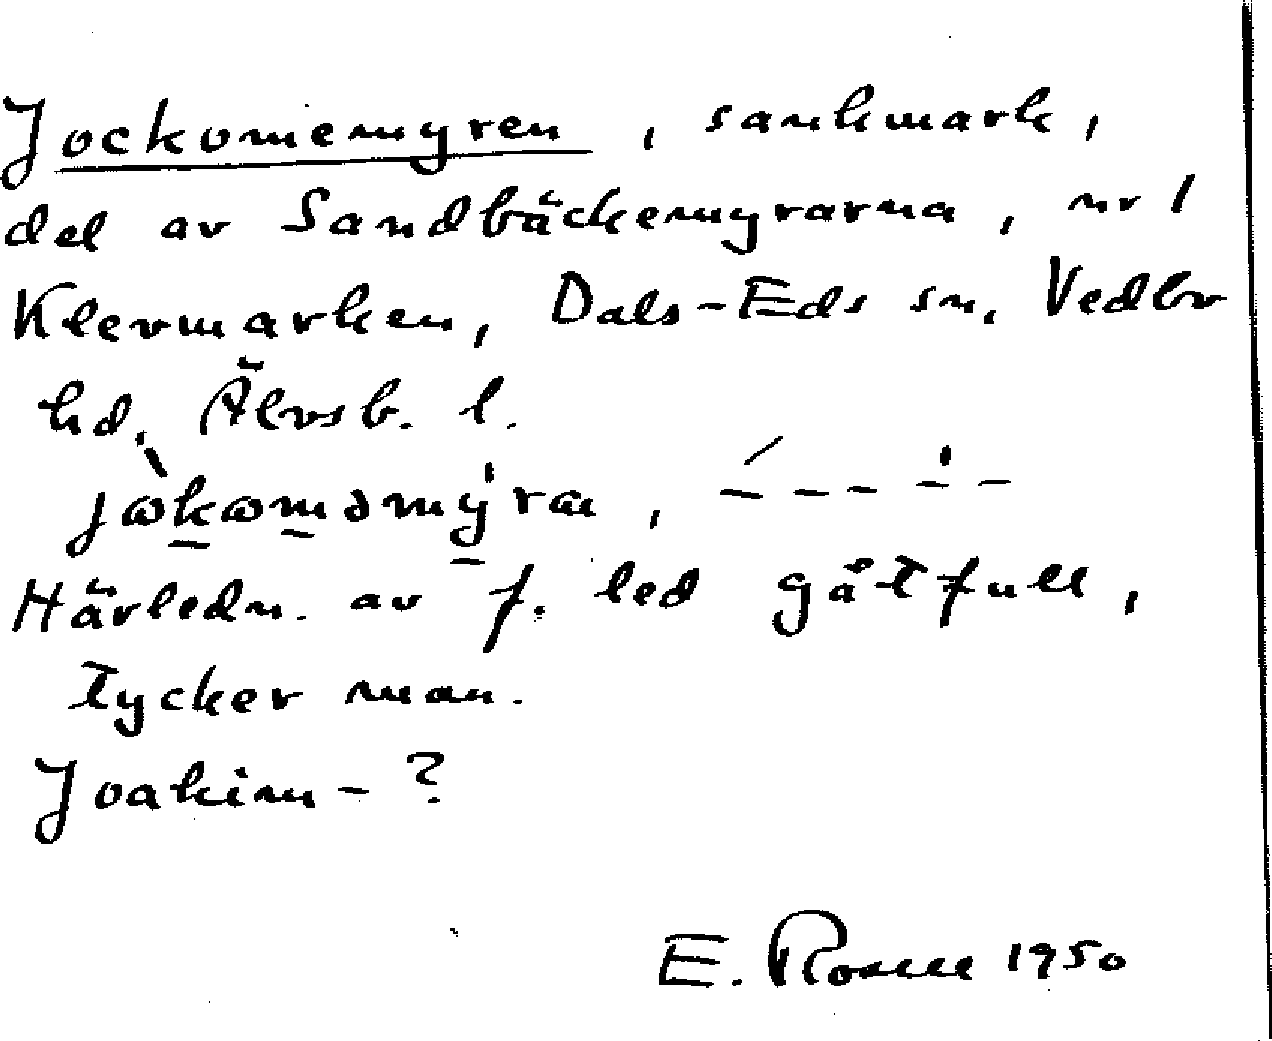 Jockomemyren, sankmark,
del av Sandbäckemyrarna, nr 1
Klevmarken, Dals-Eds sn, Vedbo
hd. Älvsb. l.
Härledn. av f. led gåtfull,
tycker man.
Joakim-?
E. 1950